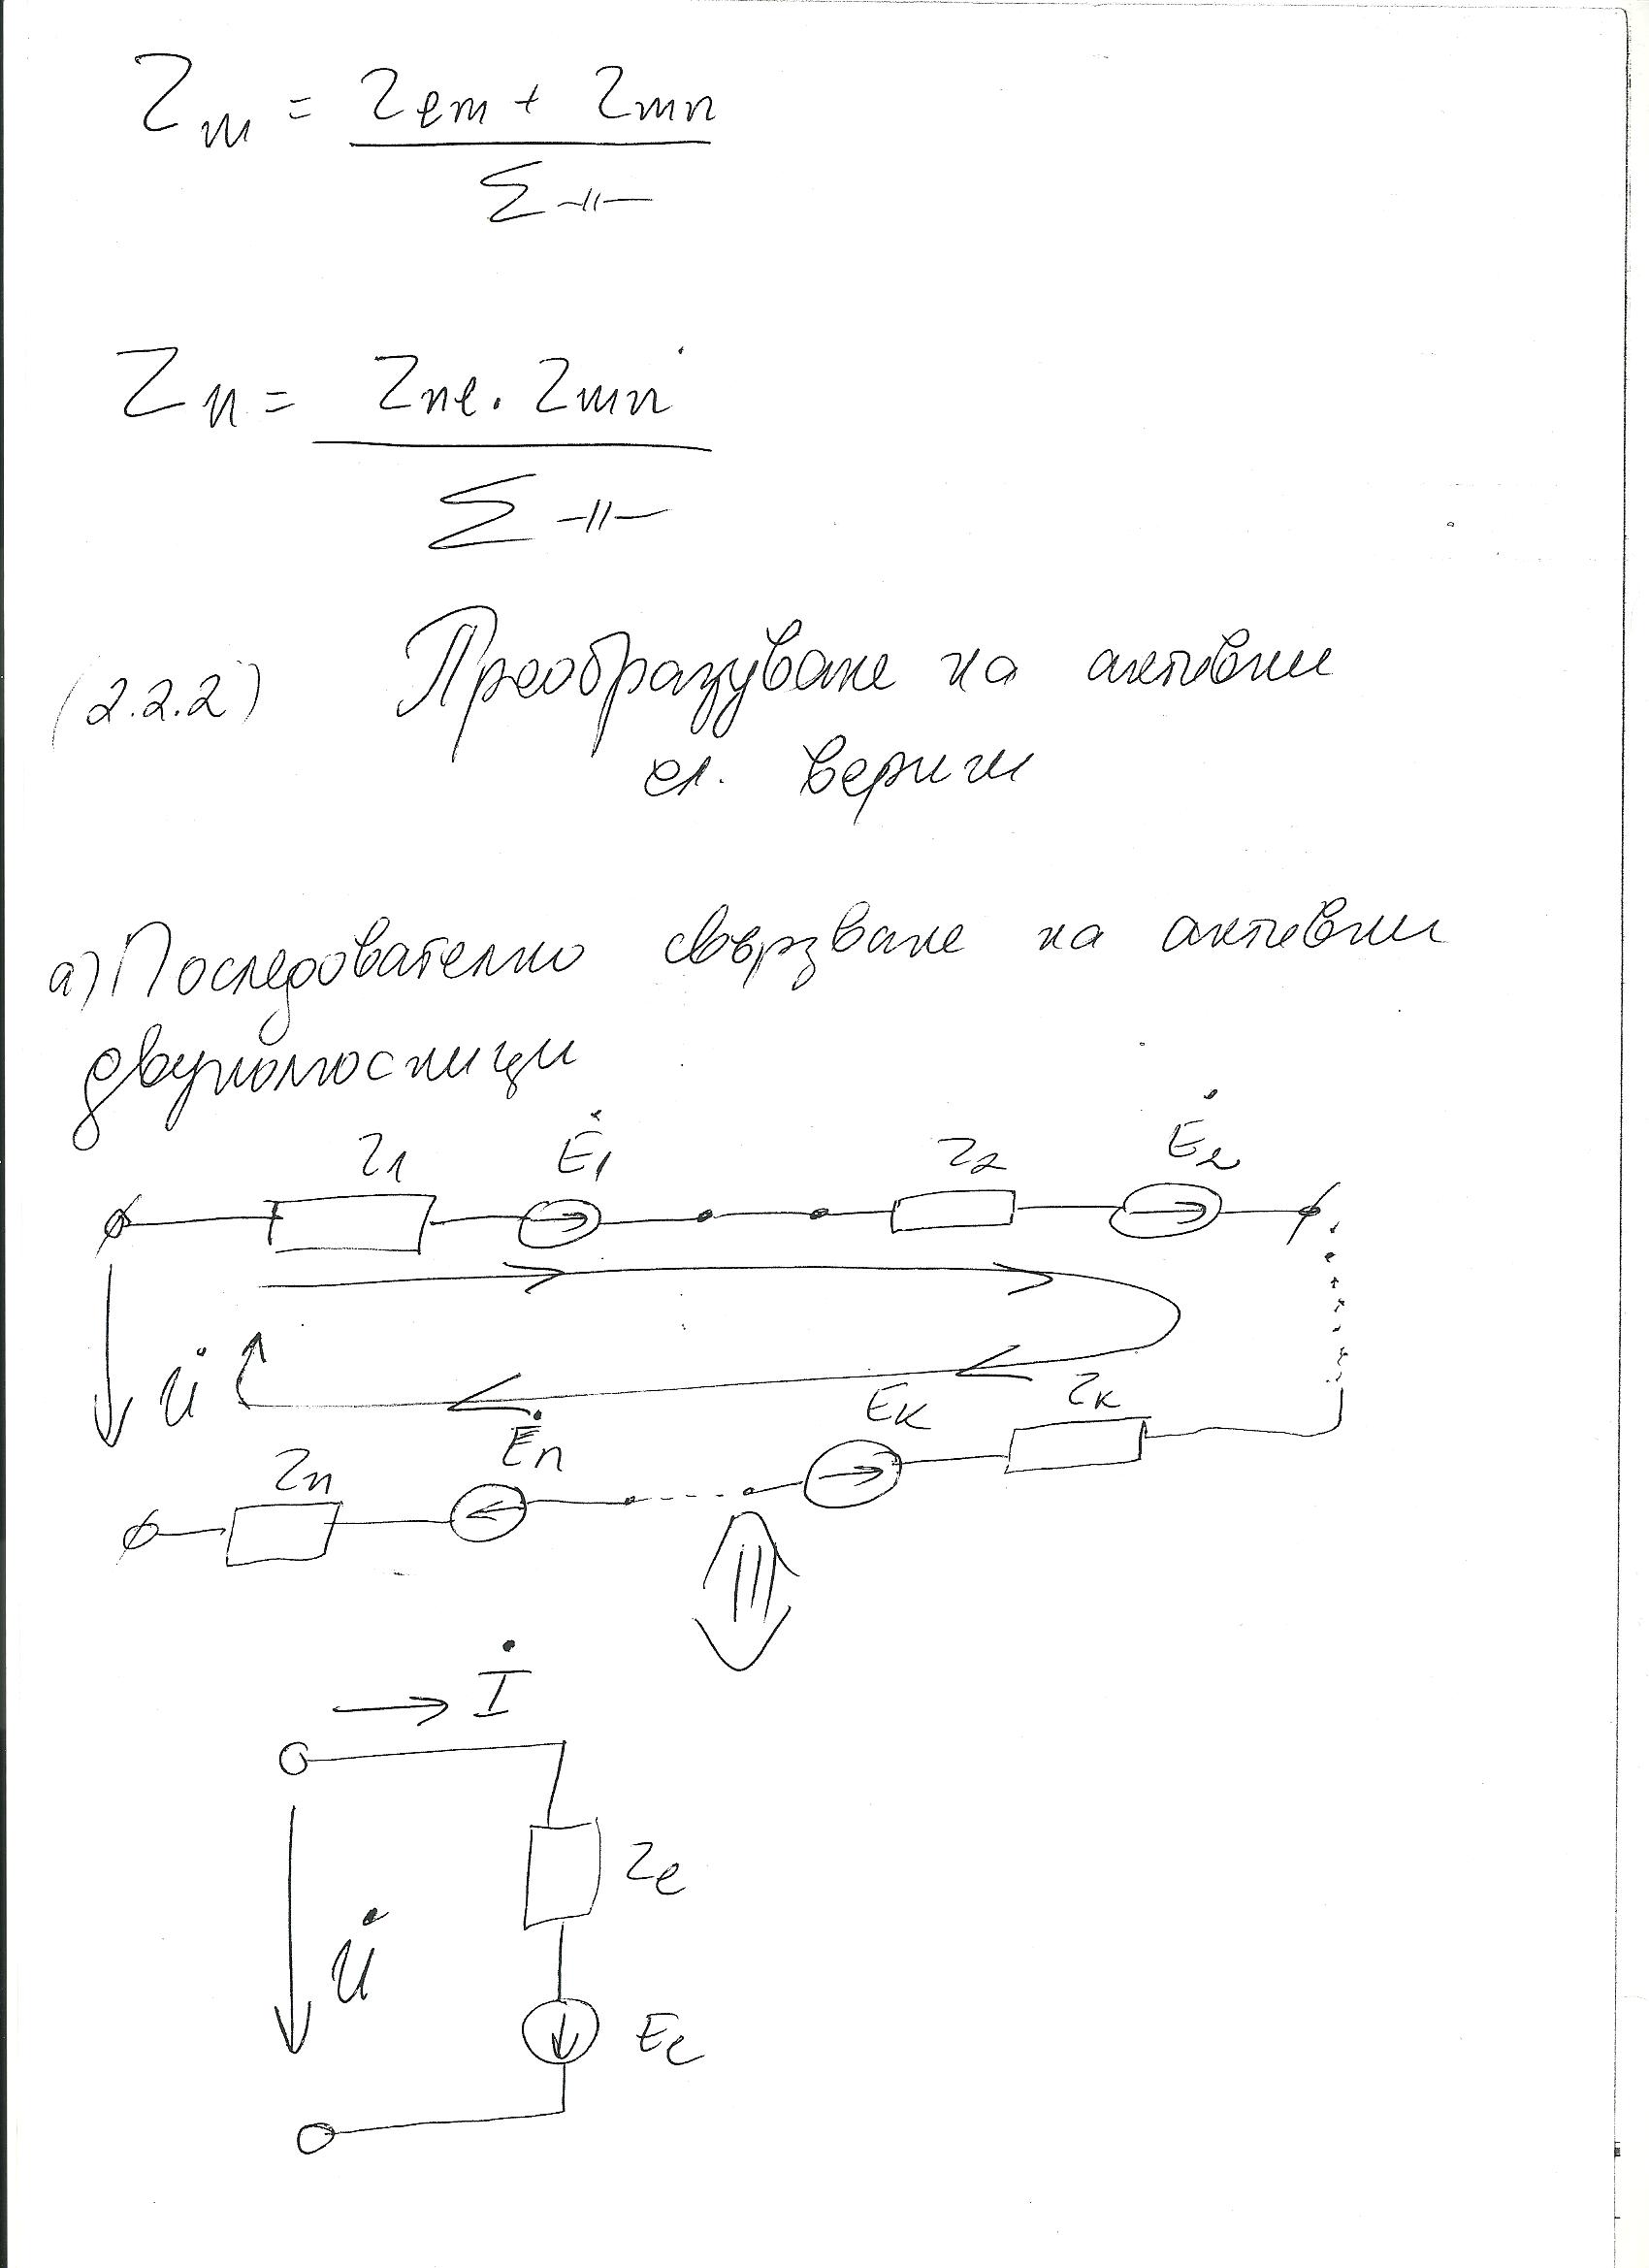 Zm = Zem + Zmn
Σ -//-
Zn = Zne . Zmn
Σ -//-
(2.2.2) Преобразуване на активни
ел. вериги
а) Последователно свързване на активни
двуполюсници
Z1 Ė1 Z2 Ė2
U̇
Ėn Eк Zк
Zn
İ
Ze
U̇
Ee